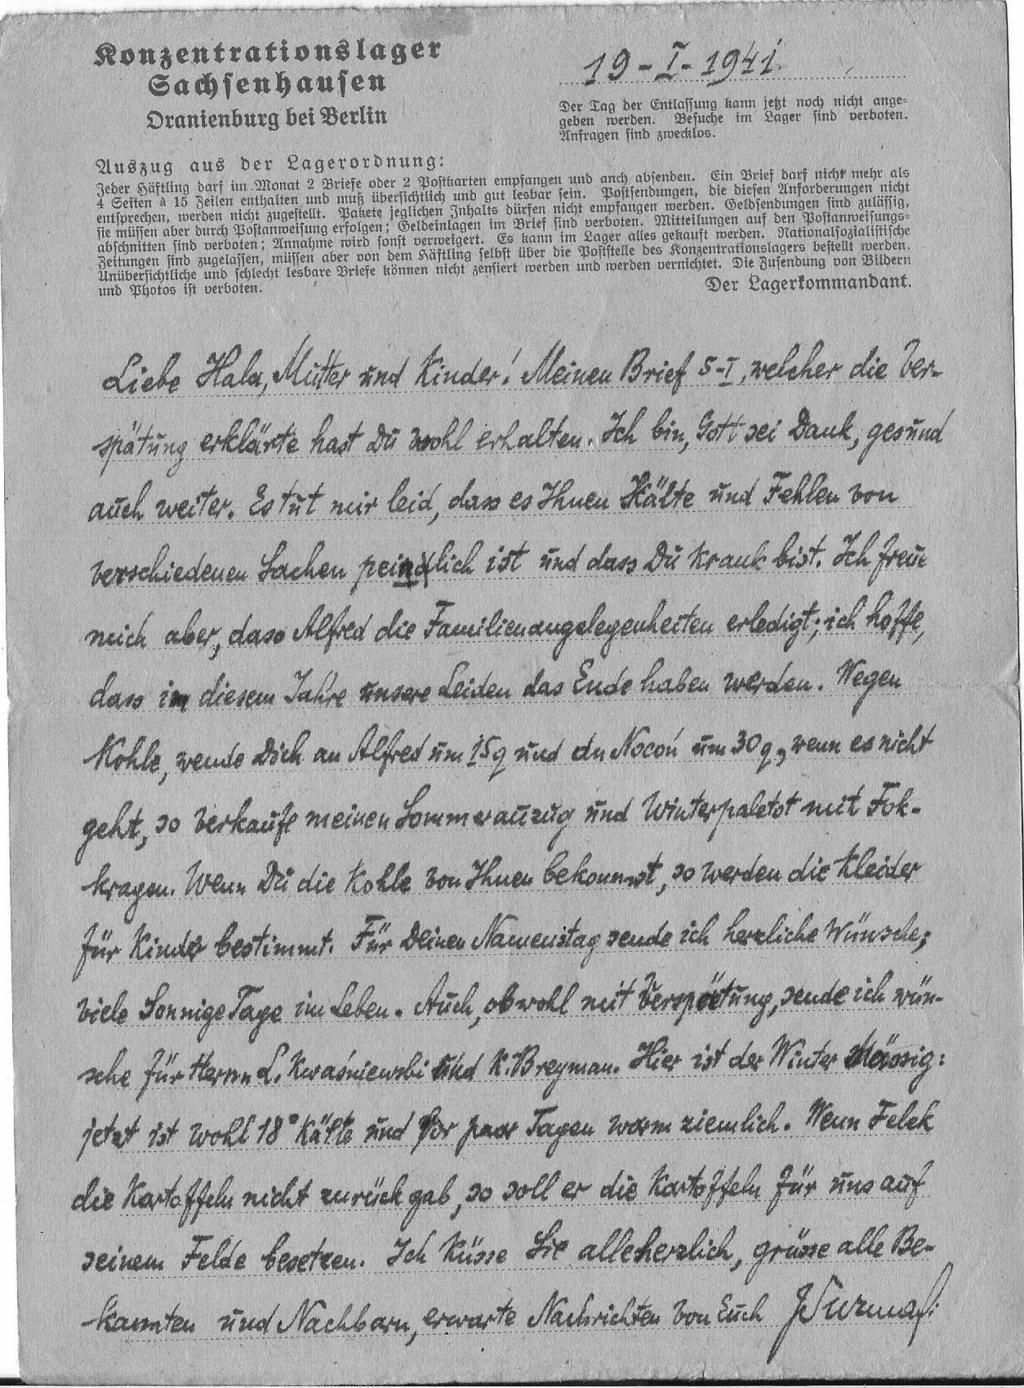 Konzentrationslager
Sachsenhausen
Oranienburg bei Berlin
19-I-1941.
Der Tag der Entlassung kann jetzt noch nicht ange-
geben werden. Besuche im Lager sind verboten.
Anfragen sind zwecklos.
Auszug aus der Lagerordnung:
Jeder Häftling darf im Monat 2 Briefe oder 2 Postkarten empfangen und auch absenden. Ein Brief darf nicht mehr als
4 Seiten à 15 Zeilen enthalten und muß übersichtlich und gut lesbar sein. Postsendungen, die diesen Anforderungen nicht
entsprechen, werden nicht zugestellt. Pakete jeglichen Inhalts dürfen nicht empfangen werden. Geldsendungen sind zulässig,
sie müssen aber durch Postanweisung erfolgen; Geldeinlagen im Brief sind verboten. Mitteilungen auf den Postanweisungs-
abschnitten sind verboten; Annahme wird sonst verweigert. Es kann im Lager alles gekauft werden. Nationalsozialistische
Zeitungen sind zugelassen, müssen aber von dem Häftling selbst über die Poststelle des Konzentrationslagers bestellt werden.
Unübersichtliche und schlecht lesbare Briefe können nicht zensiert werden und werden vernichtet. Die Zusendung von Bildern
und Photos ist verboten.
Der Lagerkommandant.
Liebe Hala, Mutter und Kinder! Meinen Brief 5-I, welcher die Ver-
spätung erklärte hast Du wohl erhalten. Ich bin, Gott sei Dank, gesund
auch weiter. Es tut mir leid, dass es Ihnen Kälte und Fehlen von
verschiedenen Sachen peinlich ist und dass Du krank bist. Ich freue
mich aber, dass Alfred die Familienangelegenheiten erledigt; ich hoffe,
dass in diesem Jahre unsere Leiden das Ende haben werden. Wegen
Kohle, wende Dich an Alfred um 15q und an Nocoń um 30q, wenn es nicht
geht, so verkaufe meinen Sommerauzug und Winterpaletot mit Fok-
kragen. Wenn Du die Kohle von Ihnen bekommst, so werden die Kleider
für Kinder bestimmt. Für Deinen Namenstag sende ich herzliche Wünsche;
viele Sonnige Tage im Leben. Auch, obwohl mit Verspätung, sende ich wün-
sche für Herrn L. Kwaśniewski und K. Breyman. Hier ist der Winter Mässig:
jetzt ist wohl 18° Kälte und for paar Tagen warm ziemlich. Wenn Felek
die Kartoffeln nicht zurück gab, so soll er die Kartoffeln für uns auf
seinem Felde besetzen. Ich Küsse Sie alleherzlich, grüsse alle Be-
kannten und Nachbarn, erwarte Nachrichten von Euch